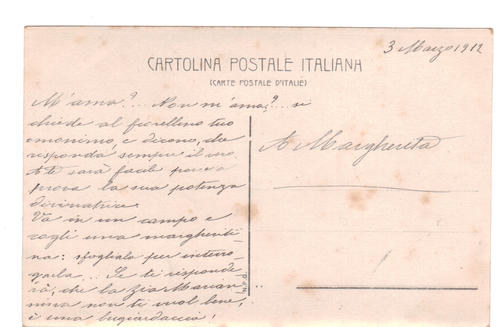 3 Marzo 1912
CARTOLINA POSTALE ITALIANA
(CARTE POSTALE D'ITALIE)
M'ama?... Non m'ama?... si
chiede al fiorellino tuo
omonimo, e dicono, che
risponda sempre il vero.
A te sarà facile
prova la sua potenza
divinatrice.
Va in un campo e
cogli una margheriti-
na: sfogliala per interro-
garla... Se ti risponde-
rà, che la zia Marian-
nina non ti vuol bene,
è una bugiardaccia!
A Margherita